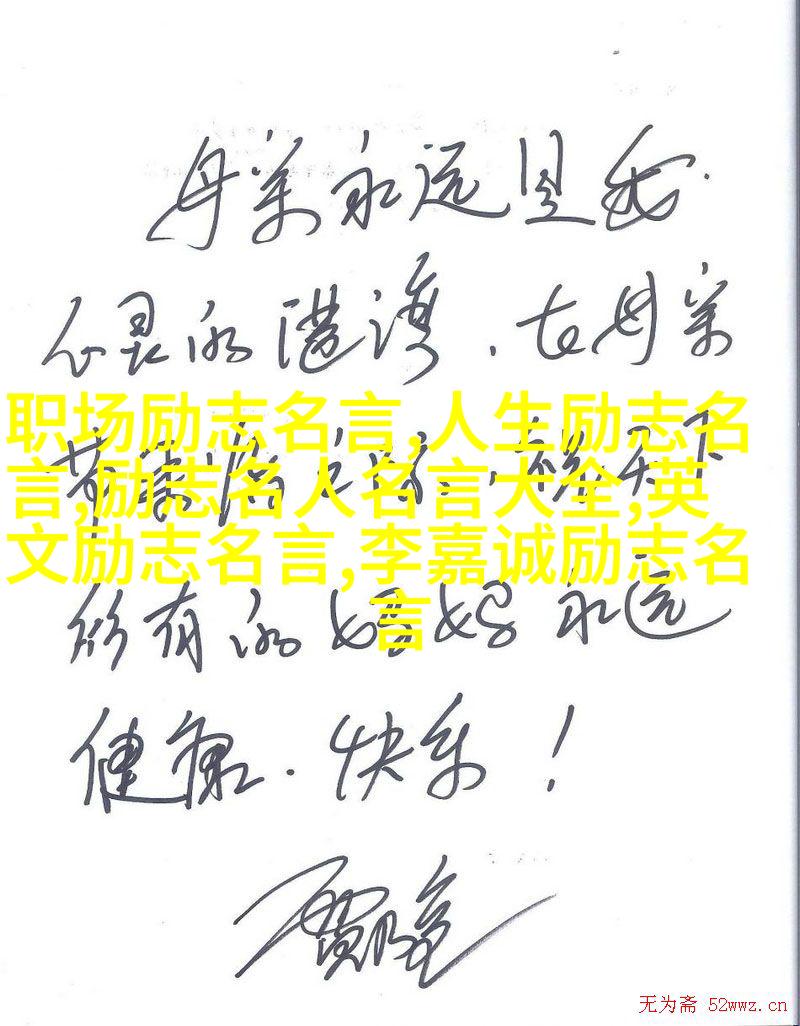 母亲永远是我
心灵的港湾，在母亲
节来临之际，祝天下
职场励志名言,人生励志名
言,励志名人名言大全,英
文励志名言,李嘉诚励志名
言
所有的妈妈永远
健康、快乐！
无为斋 52wwz.cn